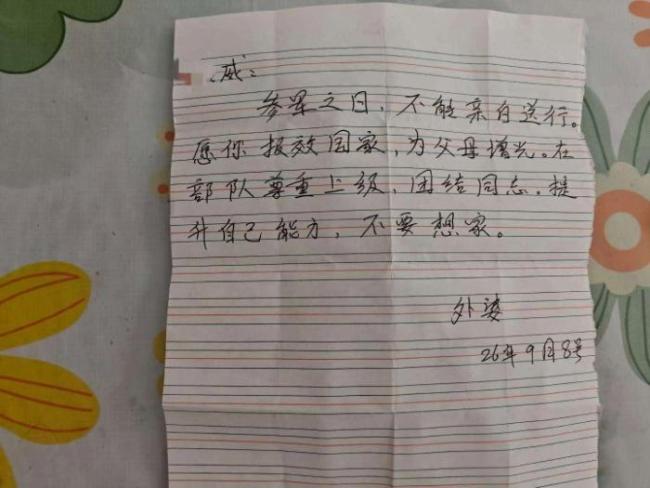 威：
参军之日，不能亲自送行。
愿你报效国家，为父母增光。在
部队尊重上级，团结同志，提
升自己能力，不要想家。
外婆
26年9月8号